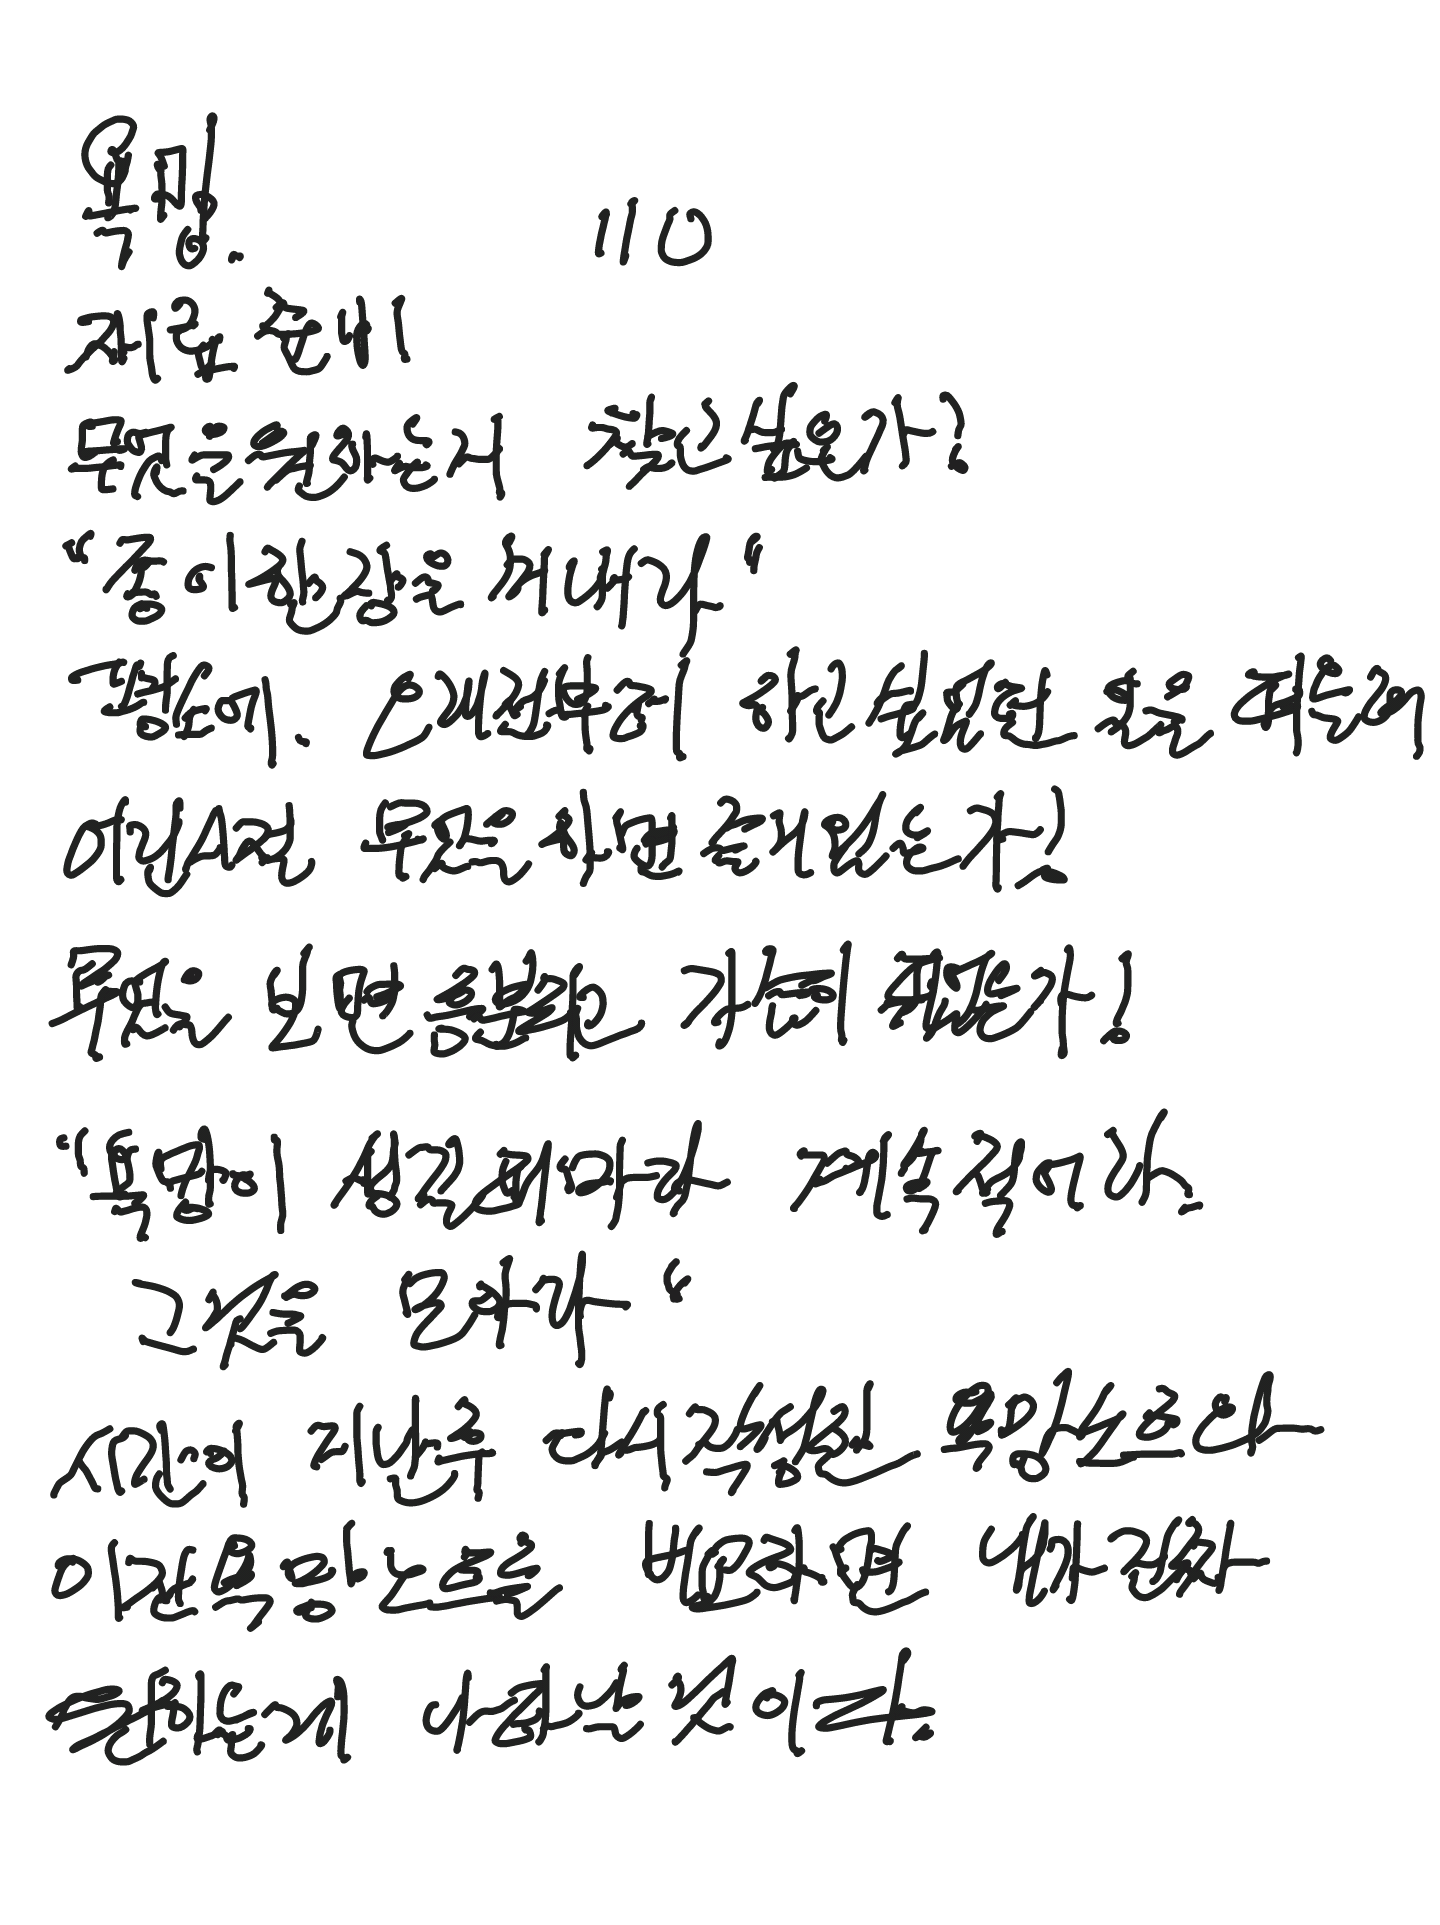 욕망. 110
재료 준비
무엇을 원하는지 찾으셨는가?
"종이 한 장을 꺼내라"
감정에. 언제부터 하고 싶었던 일을 떠올려
어린시절 무엇을 하면 즐거웠는가?
무엇을 보면 흥분되고 기분이 좋았는가!
"욕망이 생길때마다 계속 적어라.
그것을 모아라"
시간이 지난 후 다시 작성된 욕망노트라
이건 욕망노트를 반복하면 내가 진짜
원하는게 나타날 것이라.